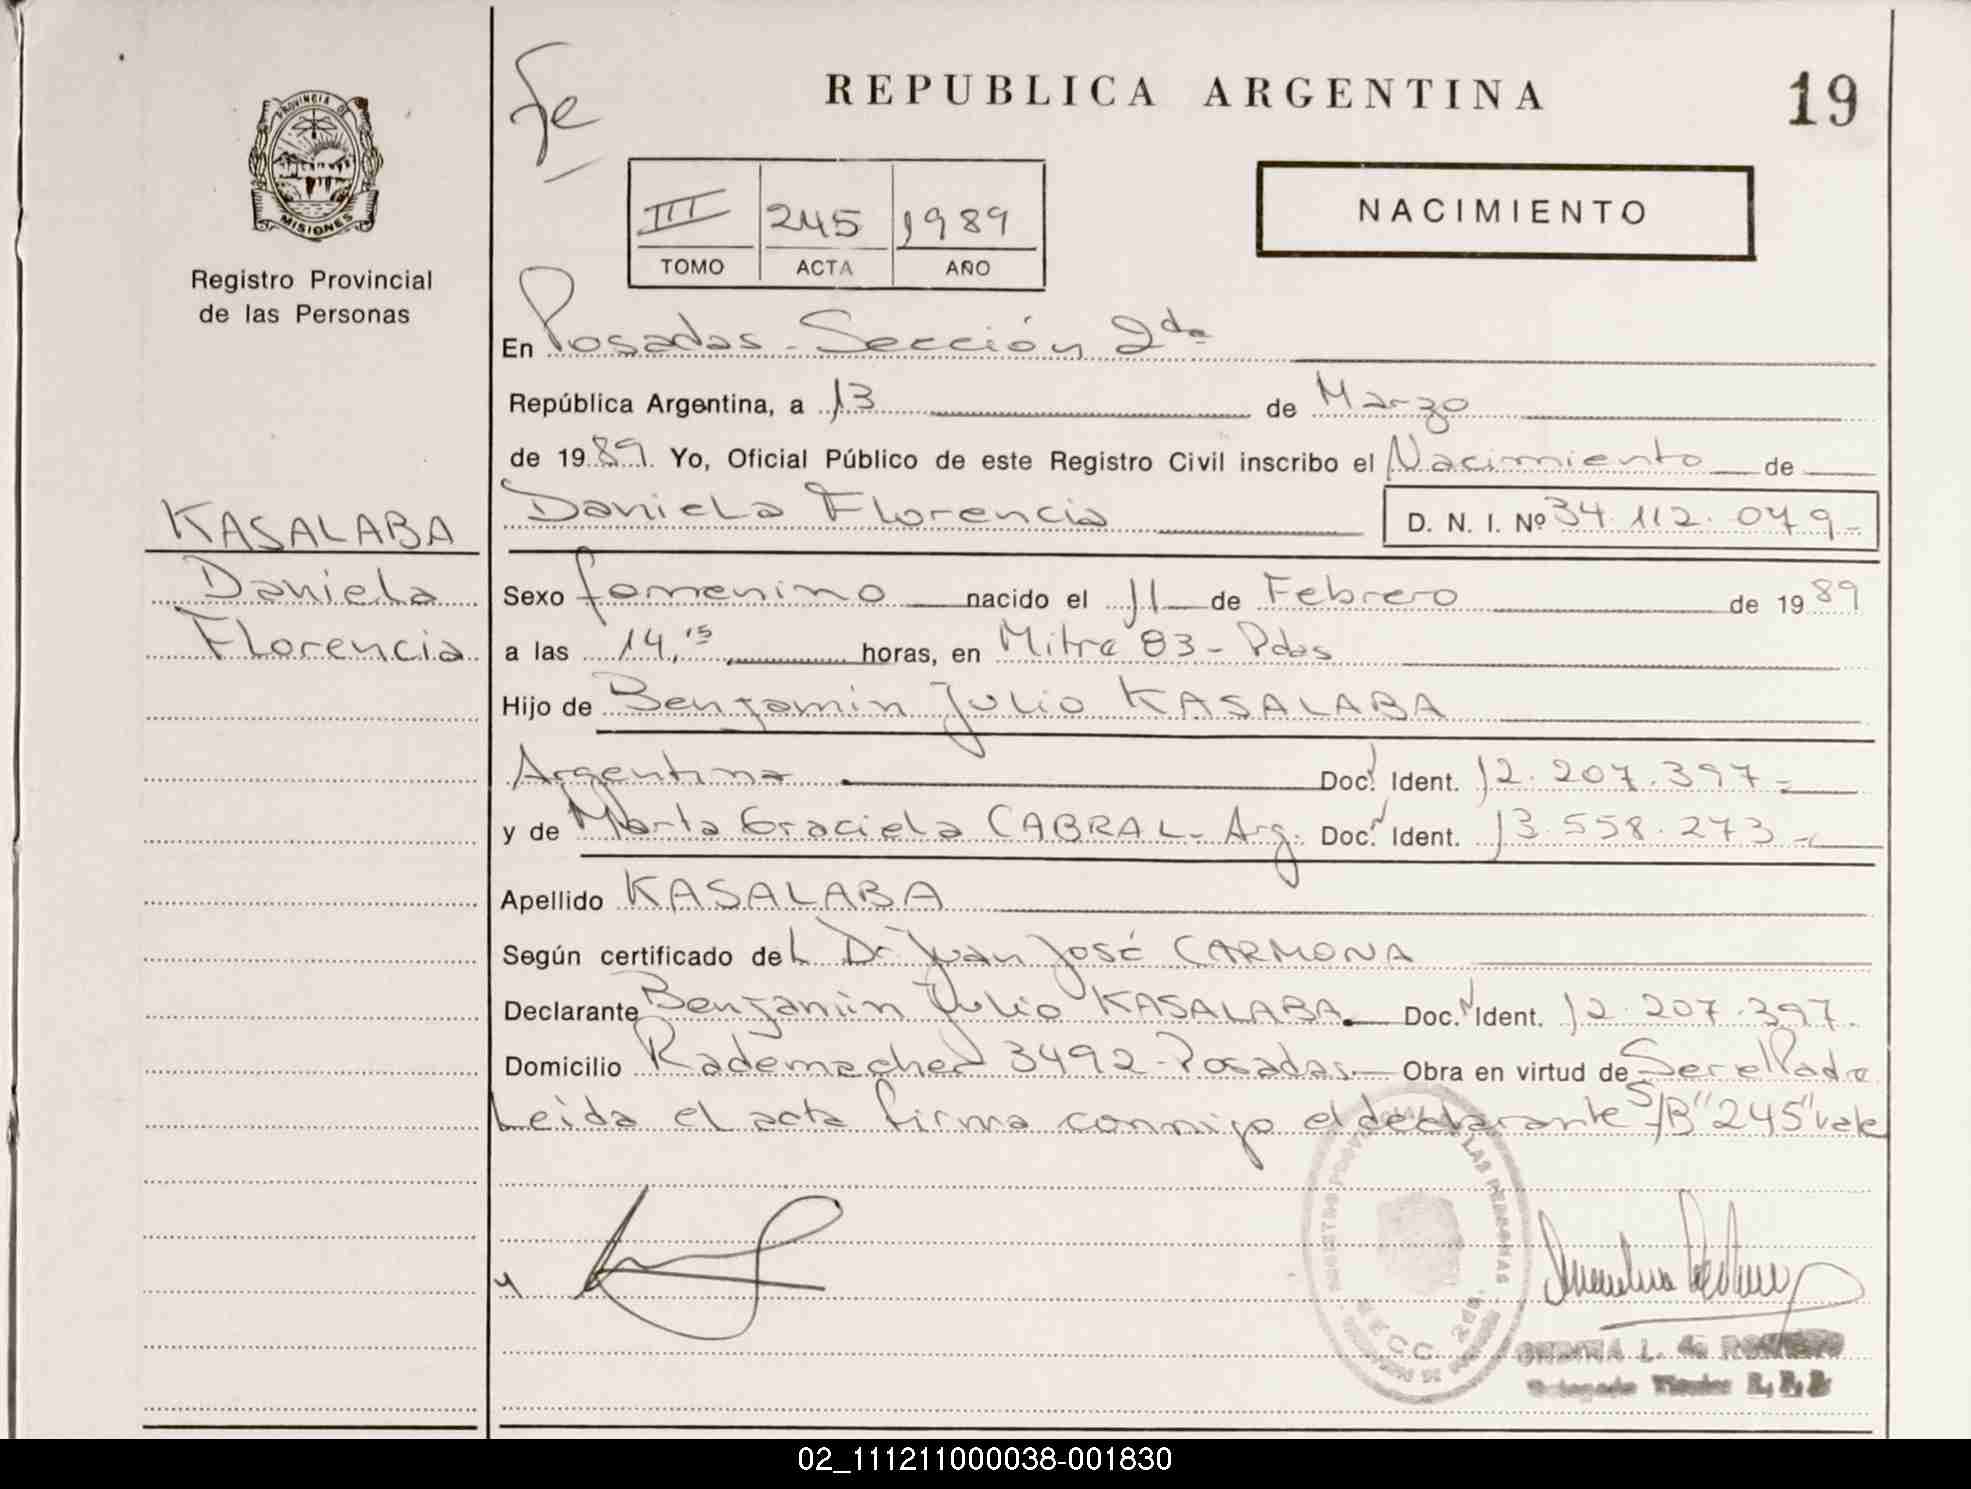 PROVINCIA DE
MISIONES
Registro Provincial
de las Personas
KASALABA
Daniela
Florencia
Fe
REPUBLICA ARGENTINA
19
III 245 1989
TOMO ACTA AÑO
NACIMIENTO
En Posadas - Sección 2da
República Argentina, a 13 de Marzo
de 1989. Yo, Oficial Público de este Registro Civil inscribo el Nacimiento de
Daniela Florencia D. N. I. Nº 34.112.079-
Sexo femenino nacido el 11 de Febrero de 1989
a las 14,15 horas, en Mitre 83 - Pdas
Hijo de Benjamín Julio KASALABA
Argentina Doc. Ident. 12.207.397-
y de Marta Graciela CABRAL - Arg. Doc. Ident. 13.558.273-
Apellido KASALABA
Según certificado del Dr Juan José CARMONA
Declarante Benjamín Julio KASALABA. Doc. Ident. 12.207.397.
Domicilio Rademacher 3492 - Posadas - Obra en virtud de Ser el Padre
Leida el acta firma conmigo el declarante S/B "245" vale
SECC. 2da.
02_111211000038-001830